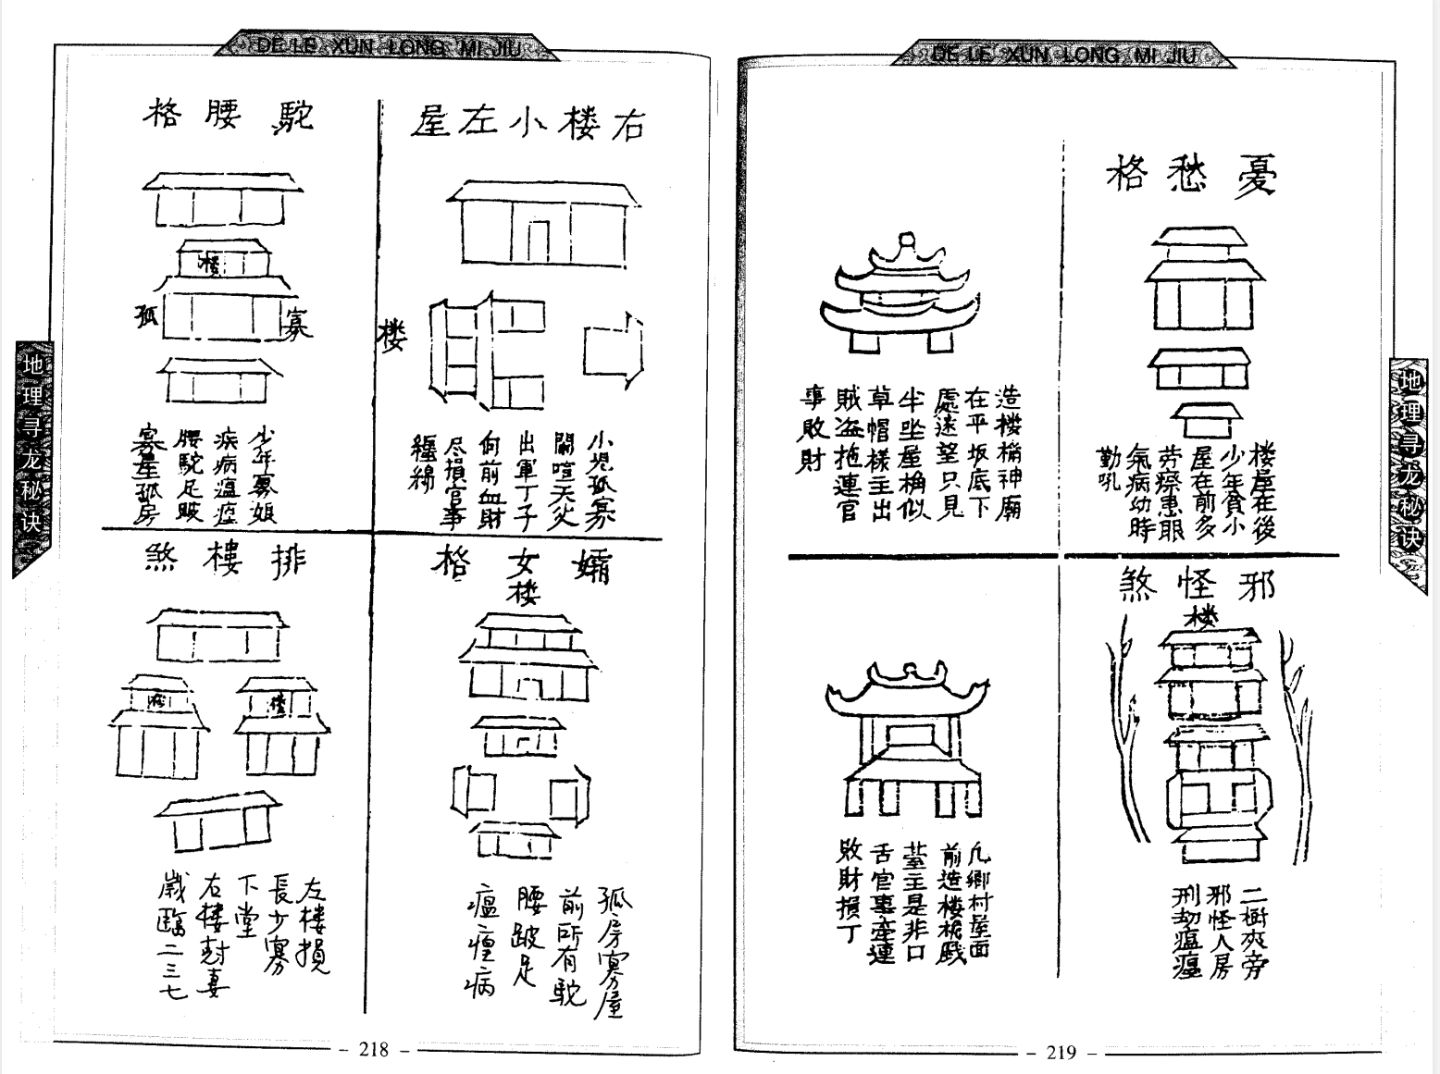 DE LE XUN LONG MI JIU
地理寻龙秘诀
右楼小左屋
楼
小児孤寡
喧天炎
出軍丁子
向前血財
尽損官事
纏綿
駝腰格
楼
孤
寡
少年寡娘
疾病瘟
腰駝足跛
寡屋孤房
孀女格
楼
孤房寡屋
前所有駝
腰跛足
瘟病
排樓煞
楼
楼
左楼損
長少寡
下堂
右楼尅妻
歲臨二三七
- 218 -
DE LE XUN LONG MI JIU
地理寻龙秘诀
憂愁格
楼屋在後
少年貧小
屋在前多
劳瘵患眼
氣病幼時
勤吼
造楼桷神廟
在平坂底下
處遠望只見
半坐屋桷似
草帽樣主出
賊盗拖連官
事敗財
邪怪煞
楼
二樹夾旁
邪怪人房
刑劫瘟
凡鄉村屋面
前造楼桅戲
臺主是非口
舌官事牽連
敗財損丁
- 219 -